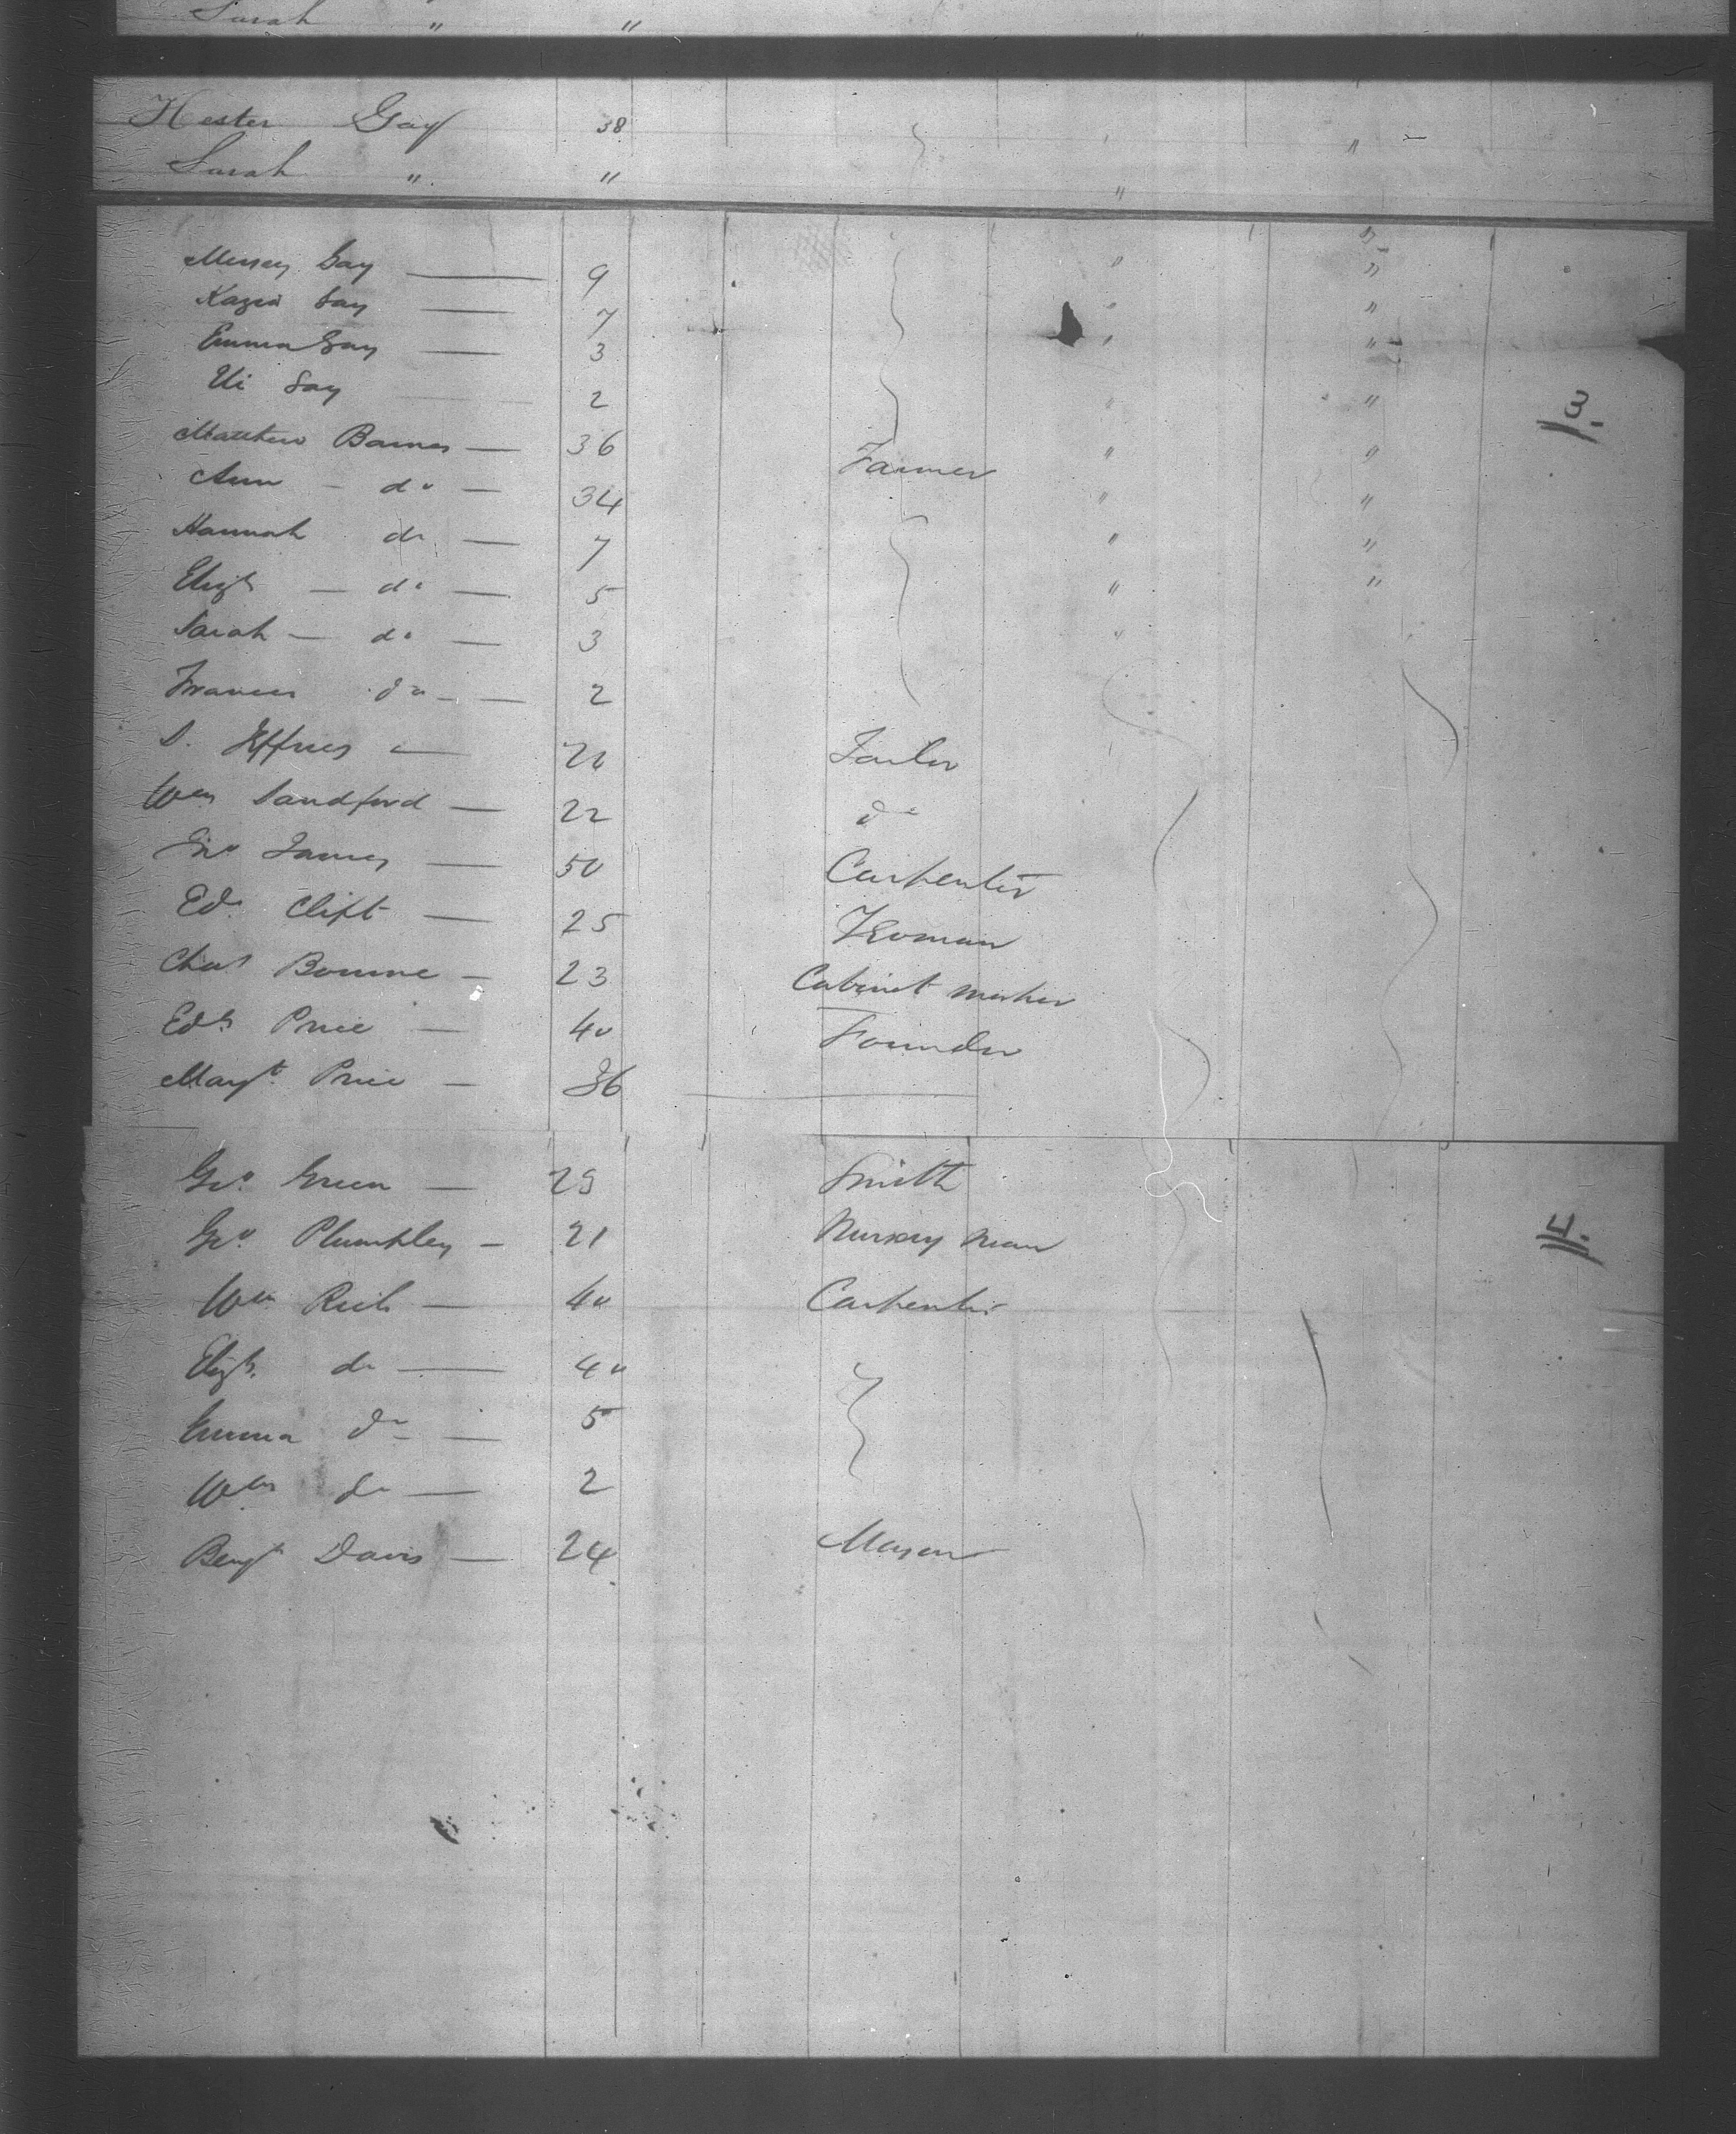 Sarah " "
Hester Gay 38 " "
Sarah " " "
Mersey Gay — 9 " "
Kazia Gay — 7 " "
Emma Gay — 3 " "
Eli Gay 2 " " 3.
Matthew Barnes — 36 Farmer " "
Ann — do — 34 " "
Hannah do — 7 " "
Elizh — do — 5 " "
Sarah — do — 3 "
Frances do — 2
S. Jeffries — 22 Tailor
Wm Sandford — 22 do
Jno James — 50 Carpenter
Ed. Clift — 25 Yeoman
Chas Bourne — 23 Cabinet maker
Edd Price — 40 Founder
Margt. Price — 36
Geo. Green — 25 Smith
Geo. Plumbley — 21 Nursery man 4.
Wm Rich — 40 Carpenter
Elizh. do — 40
Emma do — 5
Wm do — 2
Benjn Davis — 24 Mason